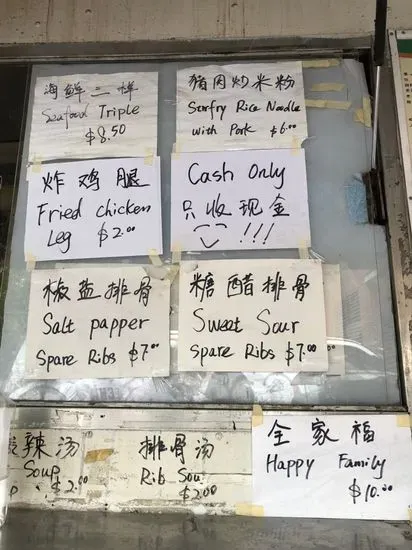 海鲜三样
Seafood Triple
$8.50
猪肉炒米粉
Starfry Rice Noodle
with Pork $6.00
炸鸡腿
Fried Chicken
Leg $2.00
Cash Only
只收现金
!!!
椒盐排骨
Salt papper
Spare Ribs $7.00
糖醋排骨
Sweat Sour
Spare Ribs $7.00
辣汤
Soup
$2.00
排骨汤
Rib Soup
$2.00
全家福
Happy Family
$10.00